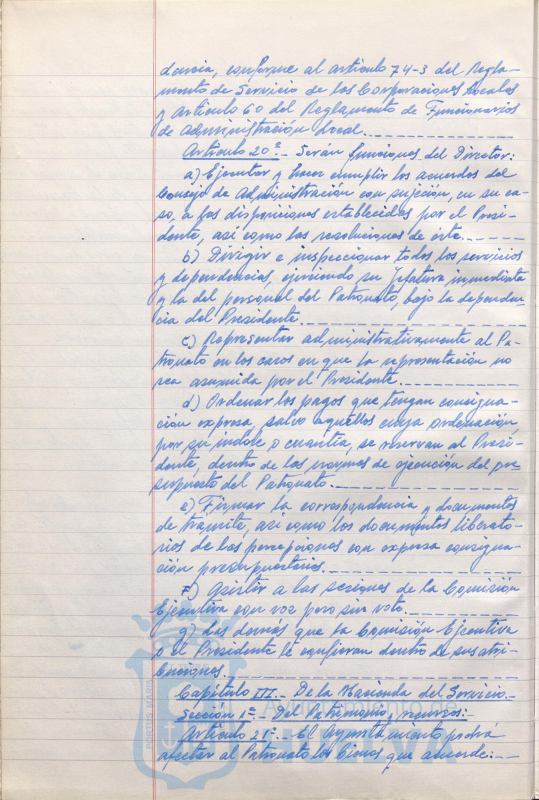 dencia, conforme al artículo 74-3 del Regla-
mento de Servicio de las Corporaciones Locales
y Artículo 60 del Reglamento de Funcionarios
de Administración Local.
Artículo 20º.- Serán funciones del Director:
a) Ejecutar y hacer cumplir los acuerdos del
Consejo de Administración con sujeción, en su ca-
so, a las disposiciones establecidas por el Presi-
dente, así como las resoluciones de éste.
b) Dirigir e inspeccionar todos los servicios
y dependencias, ejerciendo su Jefatura inmediata
y la del personal del Patronato, bajo la dependen-
cia del Presidente.
c) Representar administrativamente al Pa-
tronato en los casos en que la representación no
sea asumida por el Presidente.
d) Ordenar los pagos que tengan consigna-
ción expresa, salvo aquéllos cuya ordenación,
por su índole o cuantía, se reservan al Presi-
dente, dentro de las normas de ejecución del pre
supuesto del Patronato.
e) Firmar la correspondencia y documentos
de trámite, así como los documentos liberato-
rios de las percepciones con expresa consigna-
ción presupuestarios.
F) Asistir a las sesiones de la Comisión
Ejecutiva con voz pero sin voto.
g) Las demás que la Comisión Ejecutiva
o el Presidente le confieran dentro de sus atri-
buciones.
Capítulo III.- De la Hacienda del Servicio.-
Sección 1ª.- Del Patrimonio y recursos:-
Artículo 21º.- El Ayuntamiento podrá
afectar al Patronato los bienes que acuerde:-
PORTUS MARIS
Ayuntamiento de